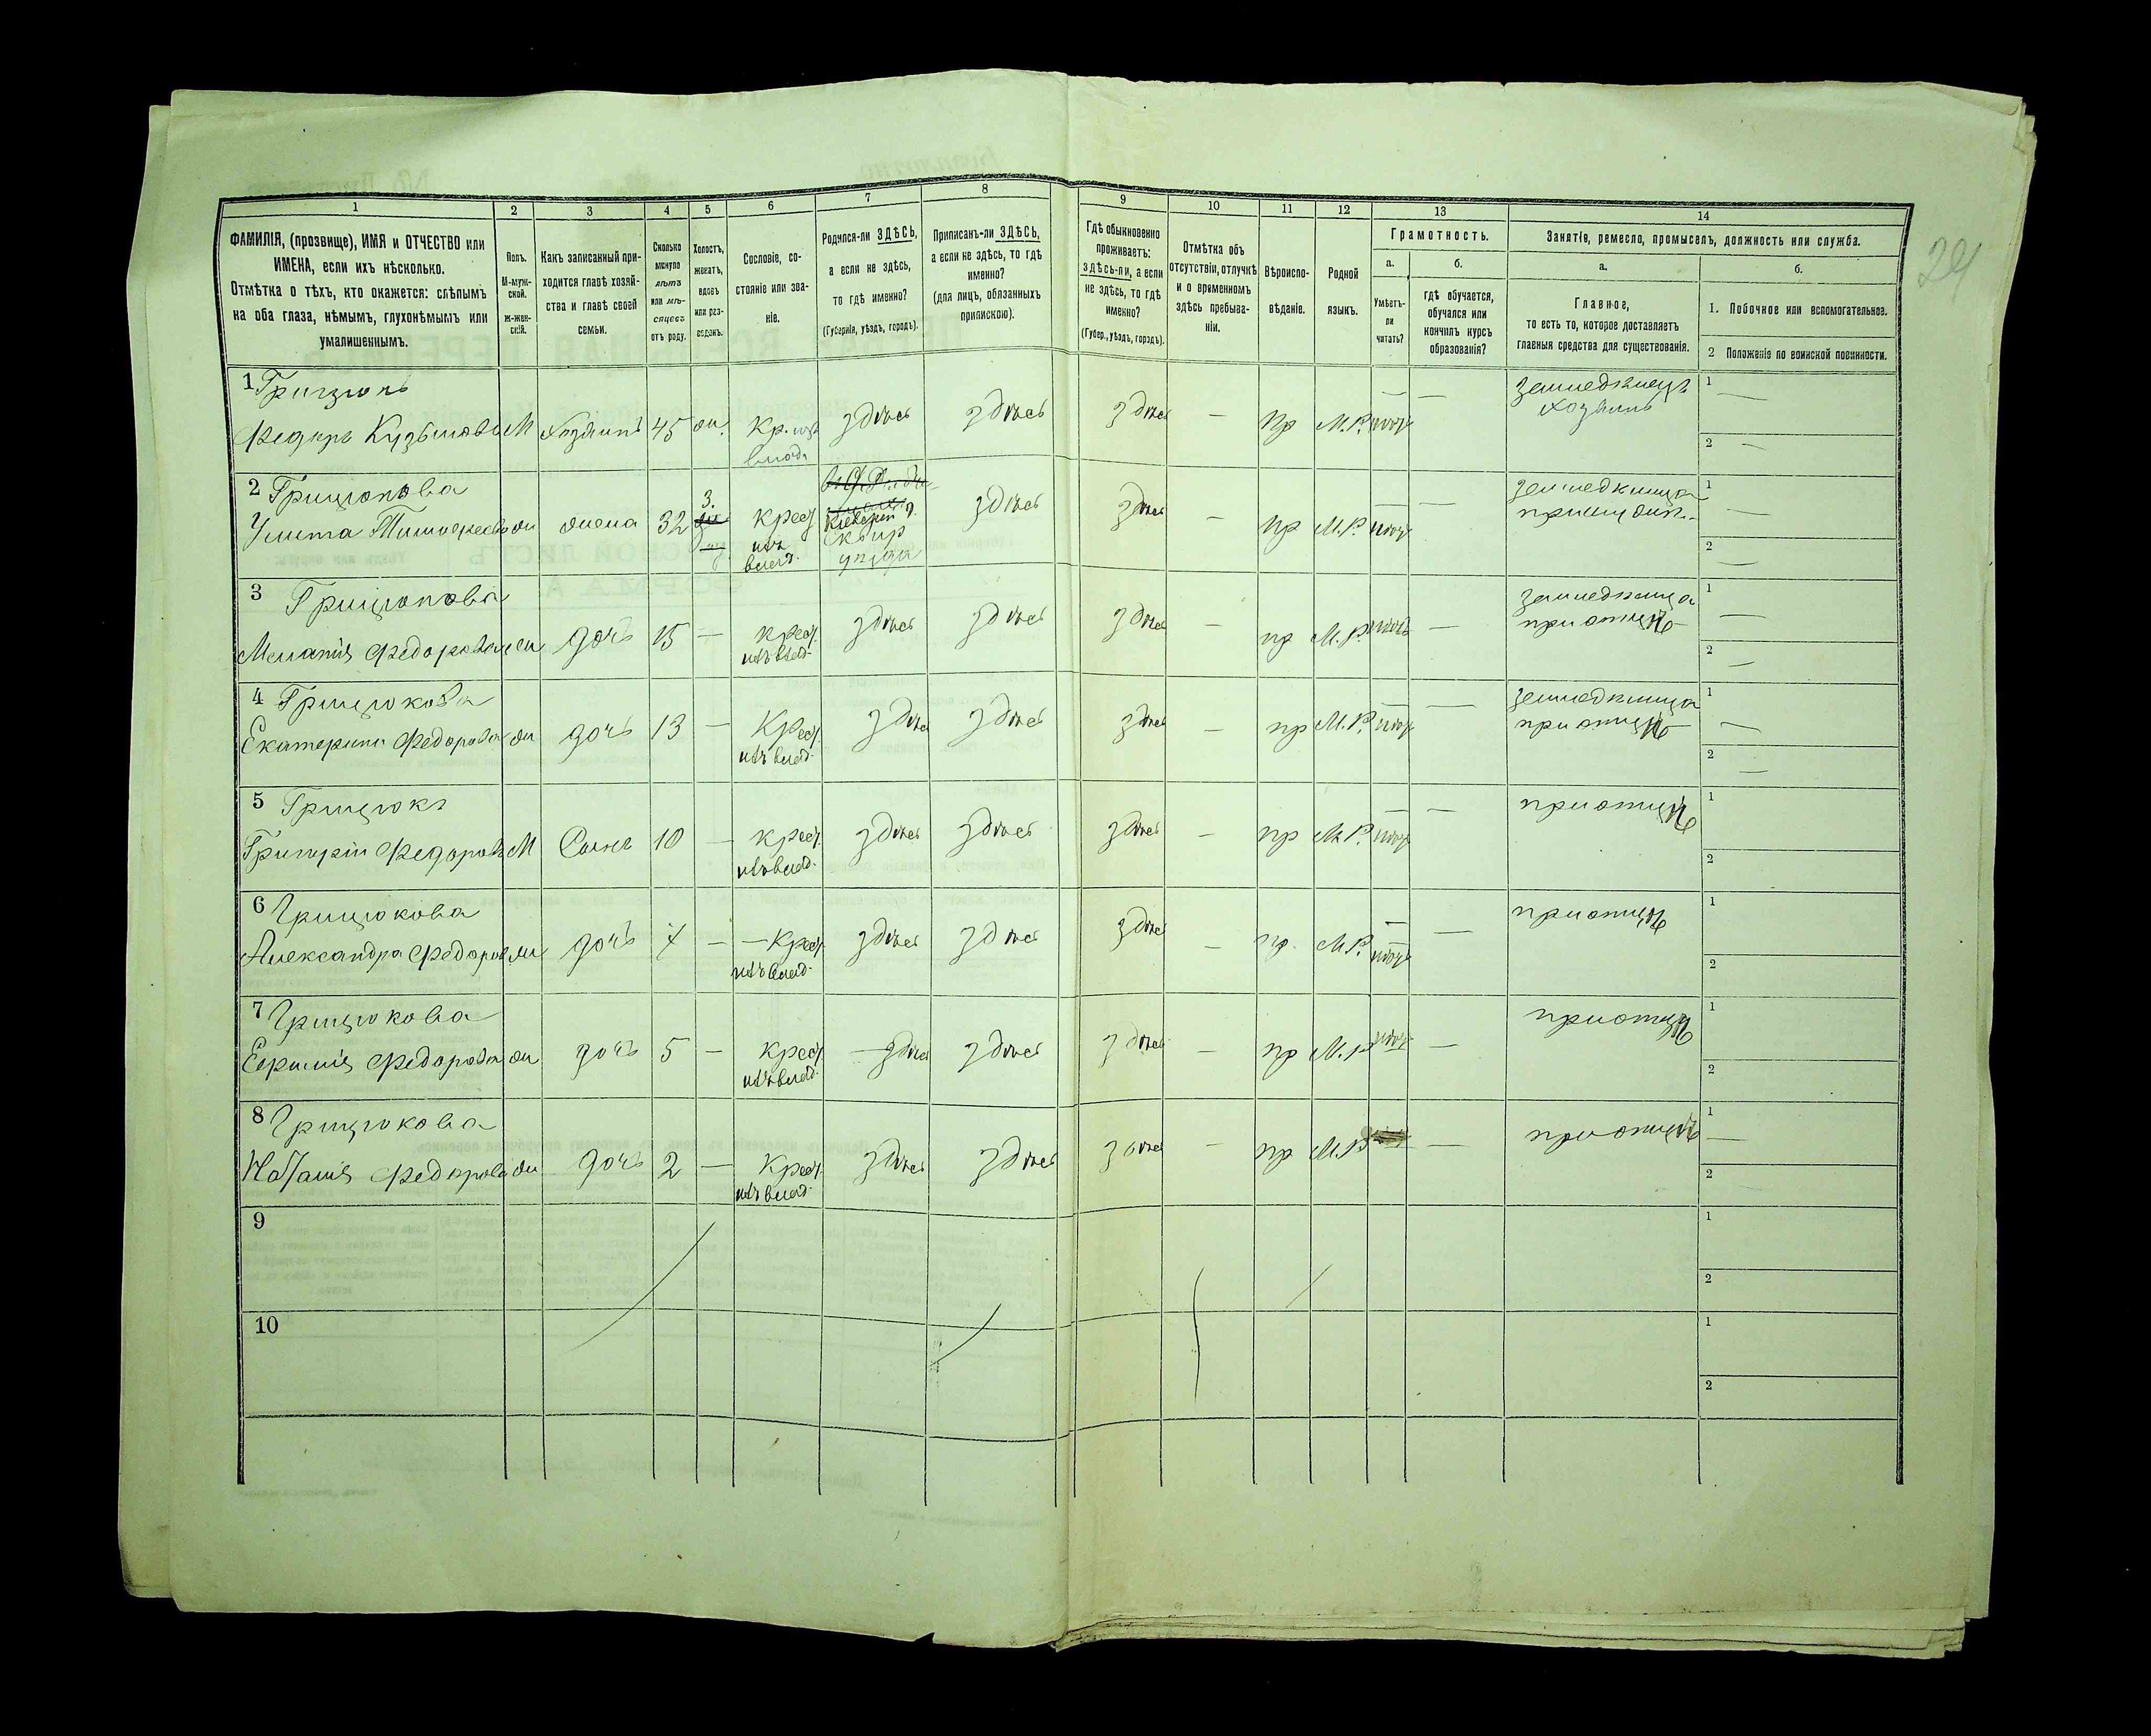 24
1 2 3 4 5 6 7 8 9 10 11 12 13 14
ФАМИЛІЯ, (прозвище), ИМЯ и ОТЧЕСТВО или
ИМЕНА, если ихъ нѣсколько.
Отмѣтка о тѣхъ, кто окажется: слѣпымъ
на оба глаза, нѣмымъ, глухонѣмымъ или
умалишеннымъ.
Полъ.
М-муж-
ской.
ж-жен-
скій.
Какъ записанный при-
ходится главѣ хозяй-
ства и главѣ своей
семьи.
Сколько
минуло
лѣтъ
или мѣ-
сяцевъ
отъ роду.
Холостъ,
женатъ,
вдовъ
или раз-
веденъ.
Сословіе, со-
стояніе или зва-
ніе.
Родился-ли ЗДѢСЬ,
а если не здѣсь,
то гдѣ именно?
(Губернія, уѣздъ, городъ).
Приписанъ-ли ЗДѢСЬ,
а если не здѣсь, то гдѣ
именно?
(для лицъ, обязанныхъ
припискою).
Гдѣ обыкновенно
проживаетъ:
здѣсь-ли, а если
не здѣсь, то гдѣ
именно?
(Губер., уѣздъ, городъ).
Отмѣтка объ
отсутствіи, отлучкѣ
и о временномъ
здѣсь пребыва-
ніи.
Вѣроиспо-
вѣданіе.
Родной
языкъ.
Грамотность.
а.
Умѣетъ-
ли
читать?
б.
гдѣ обучается,
обучался или
кончилъ курсъ
образованія?
Занятіе, ремесло, промыселъ, должность или служба.
а.
Главное,
то есть то, которое доставляетъ
главныя средства для существованія.
б.
1. Побочное или вспомогательное.
2 Положеніе по воинской повинности.
1 Грицюкъ земледѣлецъ 1
Федоръ Кузьмовъ М Хозяинъ 45 ж. Кр. изъ здѣсь здѣсь здѣсь — пр М.Р. нѣтъ — хозяинъ
влад. 2 —
2 Грицюкова 3. земледѣлица 1
Улита Тимофеева ж жена 32 крест Кіевской г. здѣсь здѣсь — пр М.Р. нѣтъ — при муж
изъ Сквир
влад. уѣзда 2 —
3 Грицюкова земледѣлица 1
Меланія Федорова ж дочь 15 — крест здѣсь здѣсь здѣсь — пр М.Р. нѣтъ — при отцѣ
изъ влад. 2 —
4 Грицюкова земледѣлица 1
Екатерина Федорова ж дочь 13 — Крест здѣсь здѣсь здѣсь — пр М.Р. нѣтъ — при отцѣ
изъ влад. 2 —
5 Грицюкъ при отцѣ 1
Григорій Федоровъ М Сынъ 10 — крест здѣсь здѣсь здѣсь — пр М.Р. нѣтъ —
изъ влад. 2
6 Грицюкова при отцѣ 1
Александра Федоров ж дочь 7 — Крест здѣсь здѣсь здѣсь — пр. М.Р. нѣтъ —
изъ влад. 2
7 Грицюкова при отцѣ 1
Евфимія Федорова ж дочь 5 — крест здѣсь здѣсь здѣсь — пр М.Р нѣтъ —
изъ влад. 2
8 Грицюкова при отцѣ 1
Наталія Федорова ж дочь 2 — крест здѣсь здѣсь здѣсь — пр М.Р —
изъ влад. 2
9 1
2
10 1
2